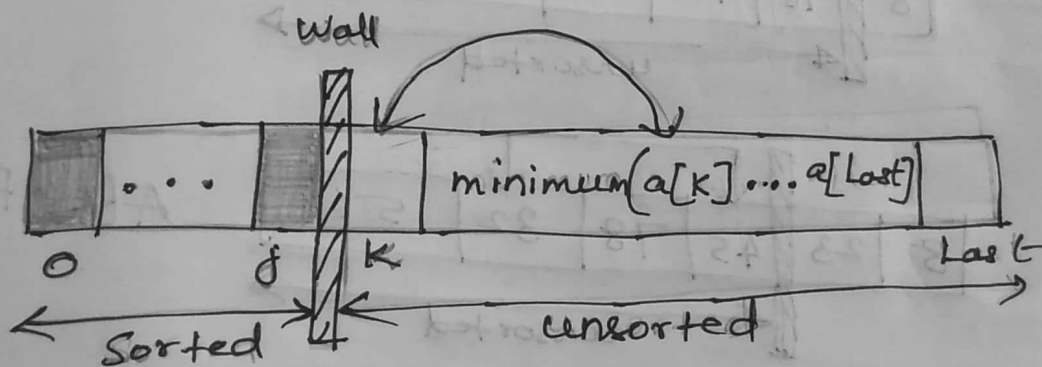 Wall
. . .
minimum(a[K] .... a[Last]
0
j
K
Last
Sorted
unsorted